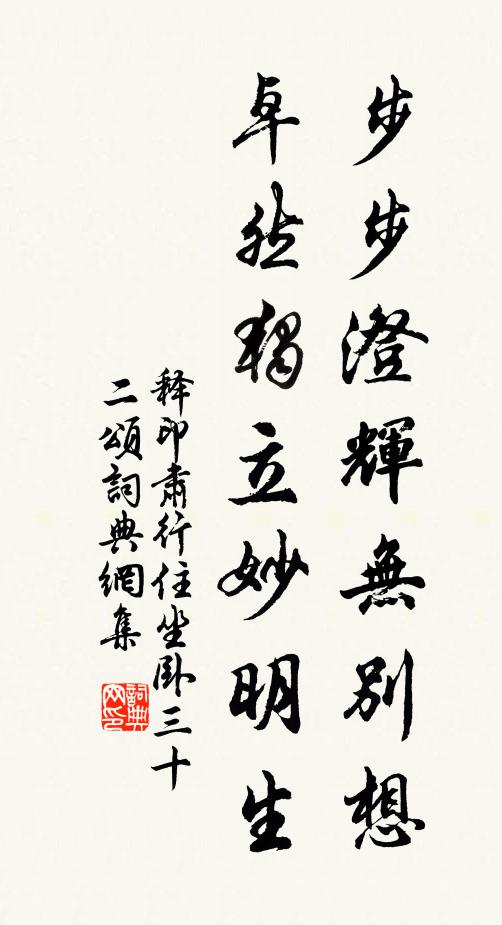 步步澄輝無別想
卓然獨立妙明生
释印肅行住坐卧三十
二頌詞典網集
詞典
网印